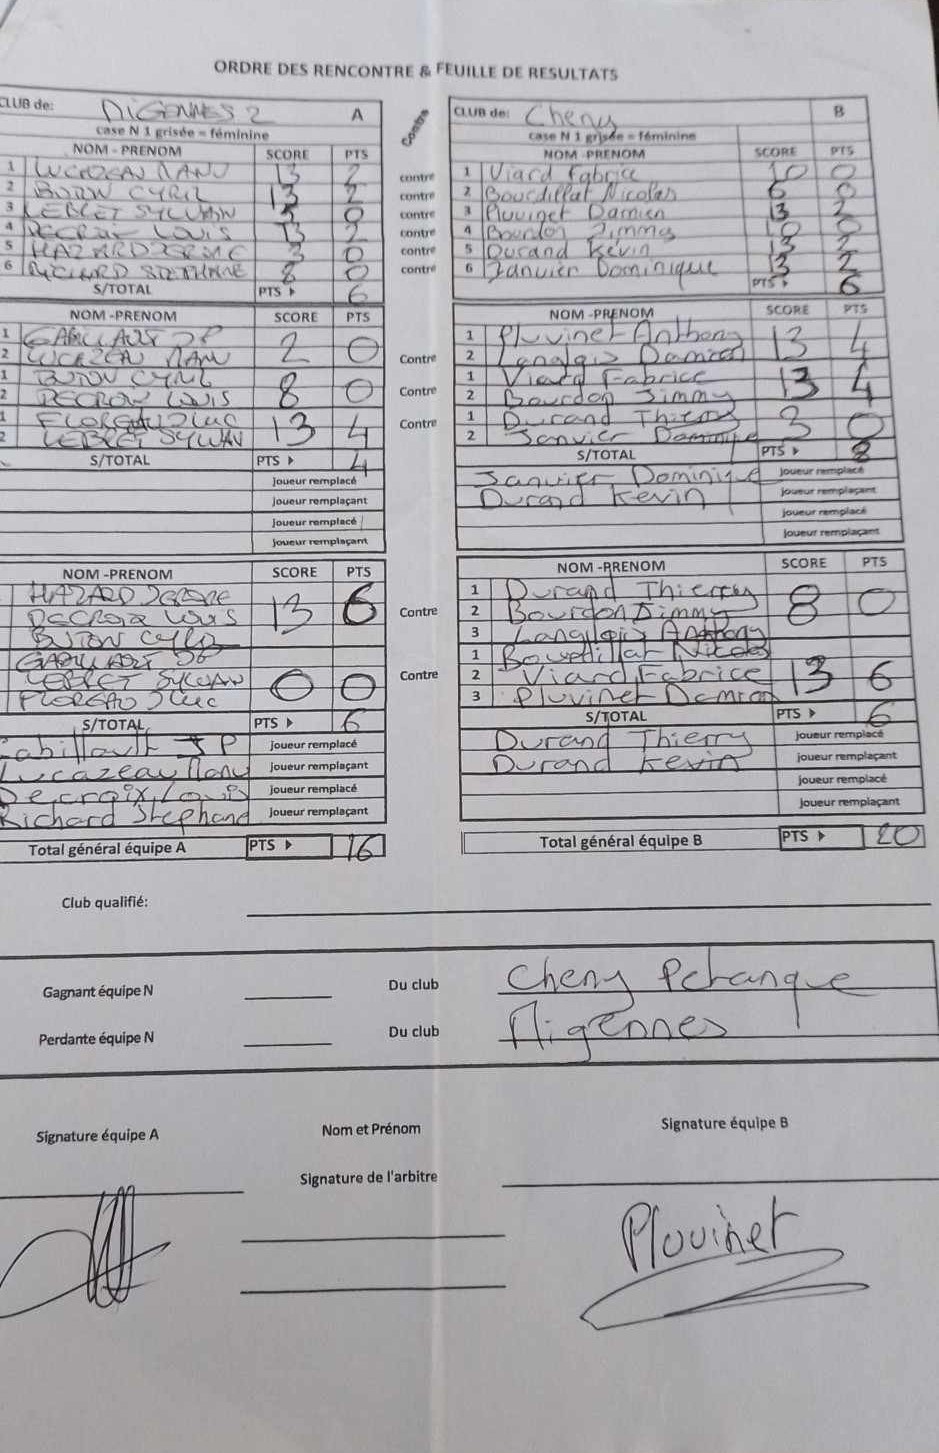 ORDRE DES RENCONTRE & FEUILLE DE RESULTATS
CLUB de: MIGENNES 2 A Contre CLUB de: Cheny B
case N 1 grisée = féminine case N 1 grisée = féminine
NOM - PRENOM SCORE PTS NOM -PRENOM SCORE PTS
1 13 2 contre 1 Viard Fabrice 10 0
2 BUTON CYRIL 13 2 contre 2 Bourdillat Nicolas 6 0
3 LEBRET SYLVAIN 5 0 contre 3 Pluvinet Damien 13 2
4 DECROIX LOUIS 13 2 contre 4 Bourdon Jimmy 10 0
5 HAZARD JEROME 3 0 contre 5 Durand Kevin 13 2
6 RICHARD STEPHANE 8 0 contre 6 Janvier Dominique 13 2
S/TOTAL PTS 6 PTS 6
NOM -PRENOM SCORE PTS NOM -PRENOM SCORE PTS
1 GABILLAULT JP 2 0 Contre 1 Pluvinet Anthony 13 4
2 MANU 2 Damien
1 BUTON CYRIL 8 0 Contre 1 Viard Fabrice 13 4
2 LOUIS 2 Bourdon Jimmy
1 JLuc 13 4 Contre 1 Durand Thierry 3 0
2 LEBRET SYLVAIN 2 Janvier Dominique
S/TOTAL PTS 4 S/TOTAL PTS 8
Joueur remplacé Janvier Dominique Joueur remplacé
Joueur remplaçant Durand Kevin Joueur remplaçant
Joueur remplacé Joueur remplacé
Joueur remplaçant Joueur remplaçant
NOM -PRENOM SCORE PTS NOM -PRENOM SCORE PTS
HAZARD JEROME 13 6 Contre 1 Durand Thierry 8 0
DECROIX LOUIS 2 Bourdon Jimmy
BUTON CYRIL 3 Anthony
GABILLAULT JP 0 0 Contre 1 Bourdillat Nicolas 13 6
LEBRET SYLVAIN 2 Viard Fabrice
JLuc 3 Pluvinet Damien
S/TOTAL PTS 6 S/TOTAL PTS 6
Gabillault JP Joueur remplacé Durand Thierry Joueur remplacé
Lucazeau Manu Joueur remplaçant Durand Kevin Joueur remplaçant
Decroix Louis Joueur remplacé Joueur remplacé
Richard Stephane Joueur remplaçant Joueur remplaçant
Total général équipe A PTS 16 Total général équipe B PTS 20
Club qualifié:
Gagnant équipe N Du club Cheny Petanque
Perdante équipe N Du club Migennes
Signature équipe A Nom et Prénom Signature équipe B
Signature de l'arbitre
Pluvinet